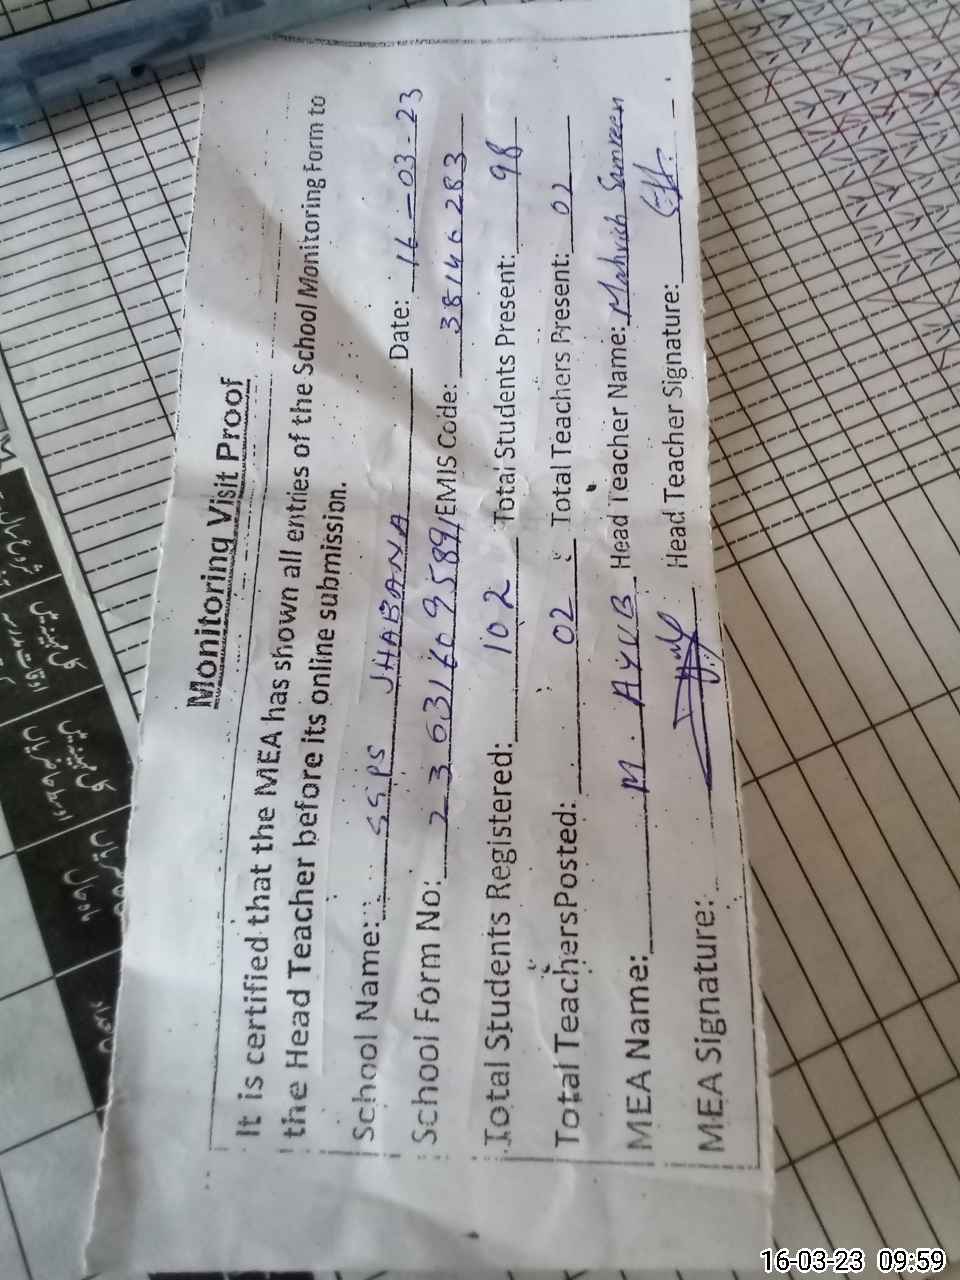 Monitoring Visit Proof
It is certified that the MEA has shown all entries of the School Monitoring Form to
the Head Teacher before its online submission.
School Name: SSPS JHABANA Date: 16-03-23
School Form No: EMIS Code: 38146283
Total Students Registered: 102 Total Students Present: 98
Total TeachersPosted: 02 Total Teachers Present: 02
MEA Name: M. AYUB Head Teacher Name: Mahvish Samreen
MEA Signature: Head Teacher Signature:
16-03-23 09:59